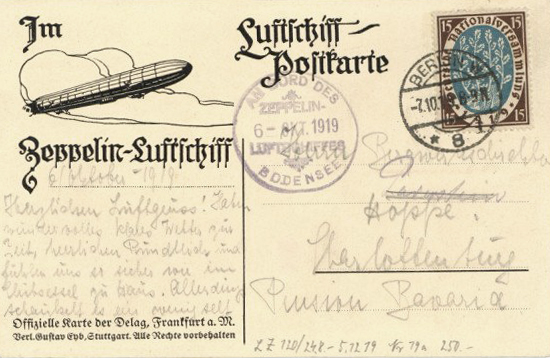 Im
Luftschiff-
Postkarte
Zeppelin-Luftschiff
6
6 Oktober 1919
Herzlichen Luftgruss!
wundervolles klares Wetter zur
Zeit, herzlichen Rundblick und
fühlen uns so sicher wie im
zu Haus. Allerdings
schaukelt es ein wenig
Offizielle Karte der Delag, Frankfurt a. M.
Verl. Gustav Eyb, Stuttgart. Alle Rechte vorbehalten
AN BORD DES
ZEPPELIN-
6 - OKT. 1919
LUFTSCHIFFES
BODENSEE
BERLIN
-7.10.19
* 8
15 15
Deutsche Nationalversammlung
1919
Hoppe.
Charlottenburg
Pension Bavaria
LZ 120/248 - 5.12.19 Nr 19a 250.-